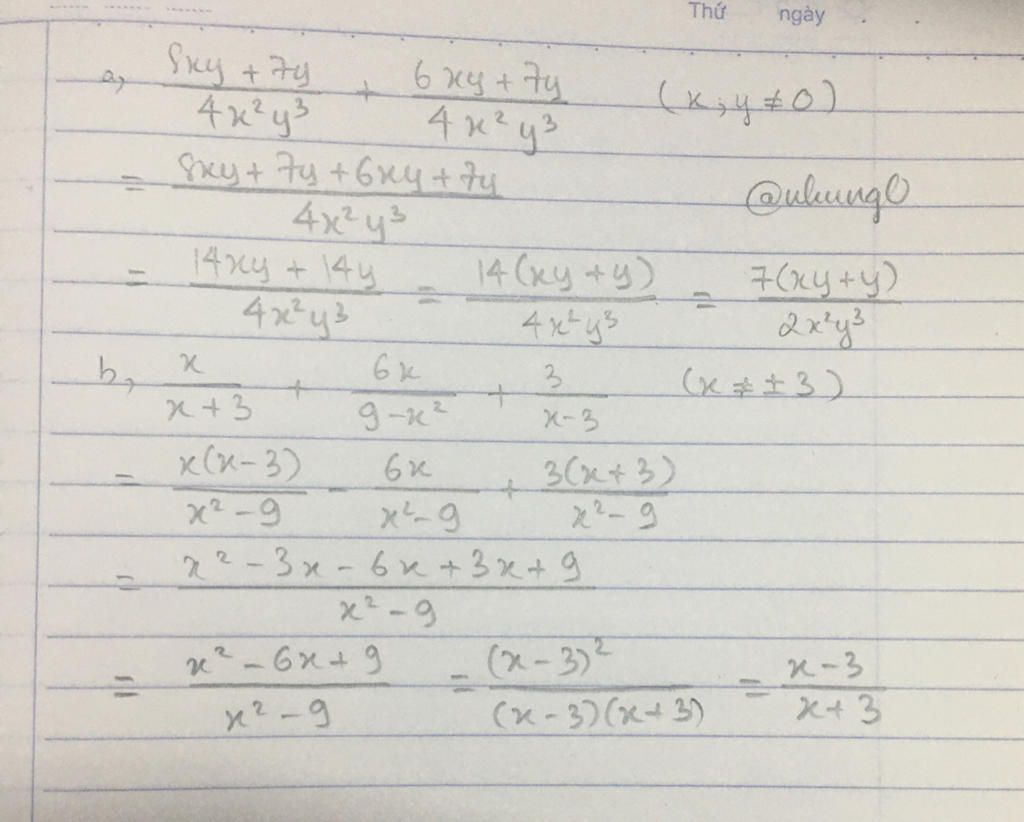 Thứ ngày
a, (8xy + 7y)/(4x²y³) + (6xy + 7y)/(4x²y³) (x; y ≠ 0)
= (8xy + 7y + 6xy + 7y)/(4x²y³)
= (14xy + 14y)/(4x²y³) = 14(xy + y)/(4x²y³) = 7(xy + y)/(2x²y³)
b, x/(x + 3) + 6x/(9 - x²) + 3/(x - 3) (x ≠ ± 3)
= x(x - 3)/(x² - 9) - 6x/(x² - 9) + 3(x + 3)/(x² - 9)
= (x² - 3x - 6x + 3x + 9)/(x² - 9)
= (x² - 6x + 9)/(x² - 9) = (x - 3)²/((x - 3)(x + 3)) = (x - 3)/(x + 3)